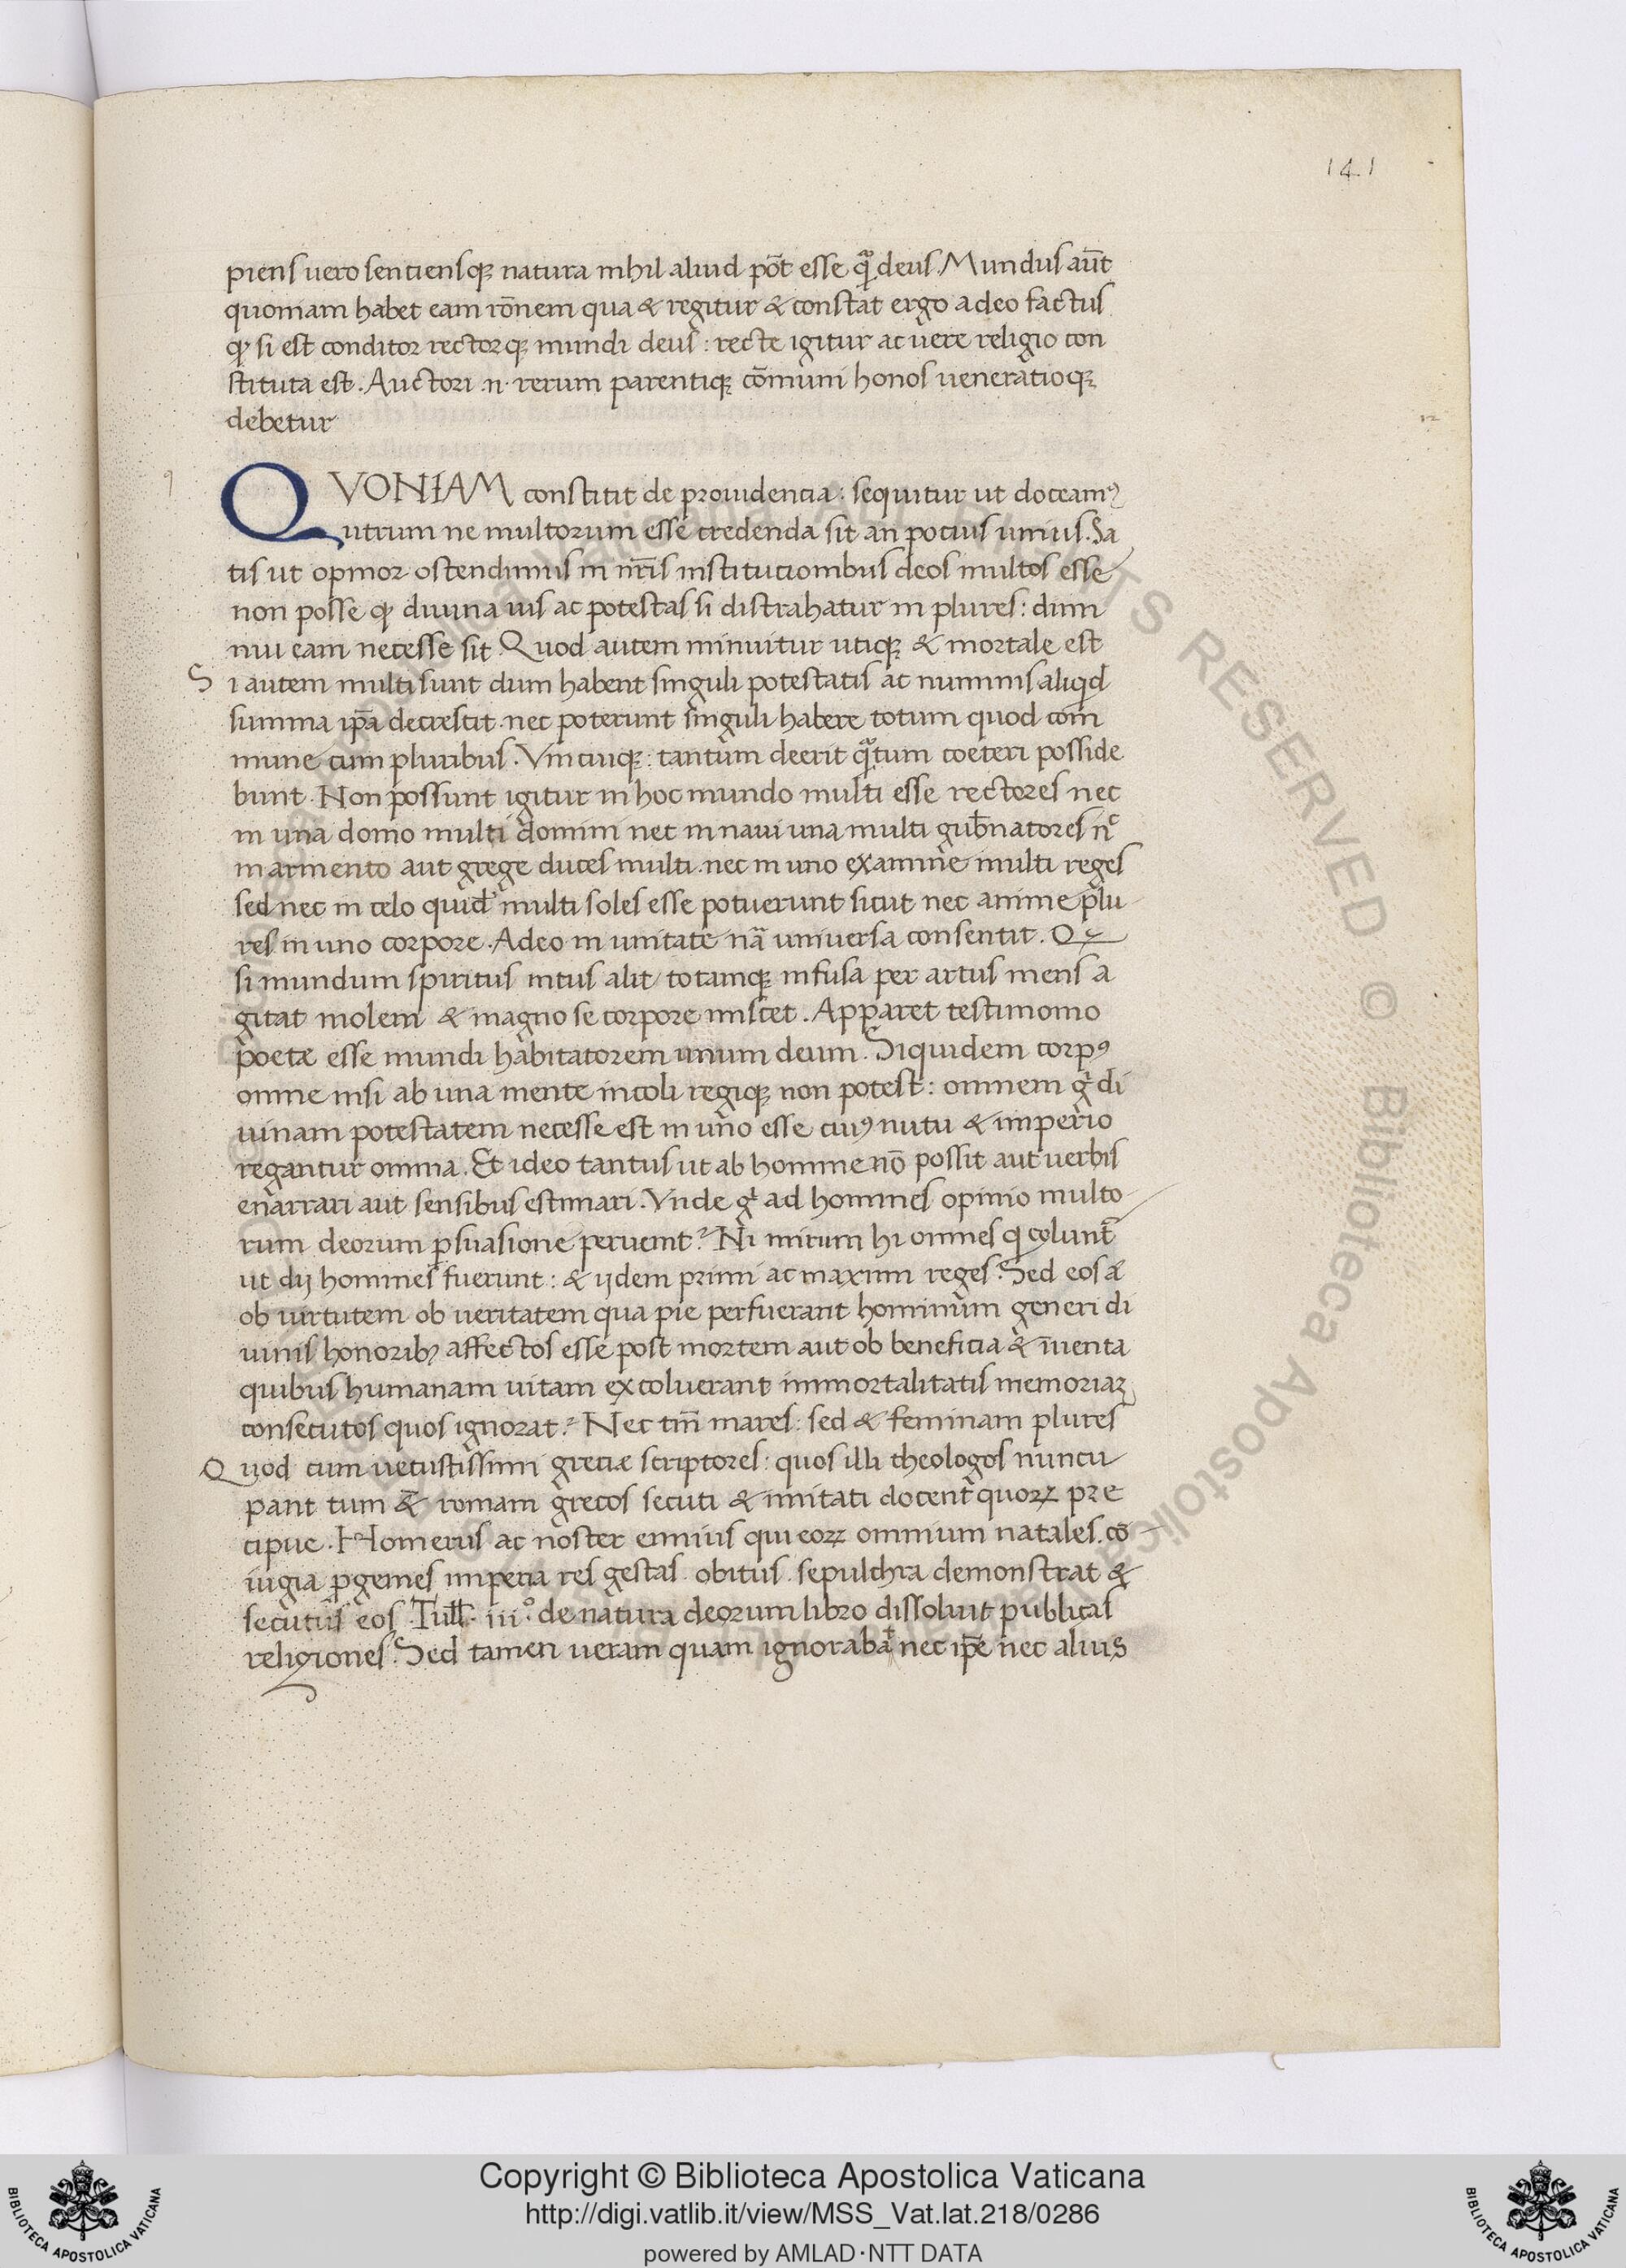 141
piens uero sentiensq; natura nihil aliud pōt esse q̄ deus. Mundus aūt
quoniam habet eam rōnem qua & regitur & constat ergo a deo factus
qꝙ si est conditor rectorq; mundi deus: recte igitur ac uere religio con
stituta est. Auctori .n. rerum parentiq; cōmuni honos ueneratioq;
debetur
QVONIAM constitit de prouidencia: sequitur ut doceamꝰ
utrum ne multorum esse credenda sit an pocius unius. Sa
tis ut opinor ostendimus in nr̄is institucionibus deos multos esse
non posse ꝙ diuina uis ac potestas si distrahatur in plures: dimi
nui eam necesse sit. Quod autem minuitur utiq; & mortale est
Si autem multi sunt dum habent singuli potestatis ac numinis aliqid
summa ip̄a decrescit. nec poterunt singuli habere totum quod com̄
mune cum pluribus. Vnicuiq;: tantum deerit q̄tum coeteri posside
bunt. Non possunt igitur in hoc mundo multi esse rectores nec
in una domo multi domini nec in naui una multi gub̄natores nͨ
in armento aut grege duces multi. nec in uno examine multi reges
sed nec in celo quid' multi soles esse potuerunt sicut nec anime plu
res in uno corpore. Adeo in unitate nā uniuersa consentit. Qꝫ
si mundum spiritus intus alit / totamq; infusa per artus mens a
gitat molem & magno se corpore miscet. Apparet testimonio
poetæ esse mundi habitatorem unum deum. Siquidem corpꝰ
omne nisi ab una mente incoli regiq; non potest: omnem gͥ di
uinam potestatem necesse est in uno esse cuiꝰ nutu & imperio
regantur omnia. Et ideo tantus ut ab homine nō possit aut uerbis
enarrari aut sensibus estimari. Vnde gͥ ad homines opinio multo
rum deorum ꝑsuasione peruenit? Ni mirum hi omnes q coluntᷣ
ut dij homines fuerunt: & ijdem primi ac maximi reges. Sed eos ā
ob uirtutem ob ueritatem qua pie perfuerant hominum generi di
uinis honoribꝰ affectos esse post mortem aut ob beneficia & īuenta
quibus humanam uitam excoluerant immortalitatis memoriaꝫ
consecutos quos ignorat? Nec tm̄ mares: sed & feminam plures
Quod cum uetustissimi greciæ scriptores: quos illi theologos nuncu
pant tum &̄ romam grecos secuti & imitati docentᷣ quorꝝ pre
cipue. Homerus ac noster ennius qui eorꝝ omnium natales. cō
iugia ꝓgenies imperia res gestas. obitus. sepulchra demonstrat &
secutus eos .Tull. iii.º de natura deorum libro dissoluit publicas
religiones. Sed tamen ueram quam ignorabāt nec ip̄e nec alius
Copyright © Biblioteca Apostolica Vaticana
http://digi.vatlib.it/view/MSS_Vat.lat.218/0286
powered by AMLAD·NTT DATA
BIBLIOTECA APOSTOLICA VATICANA
BIBLIOTECA APOSTOLICA VATICANA